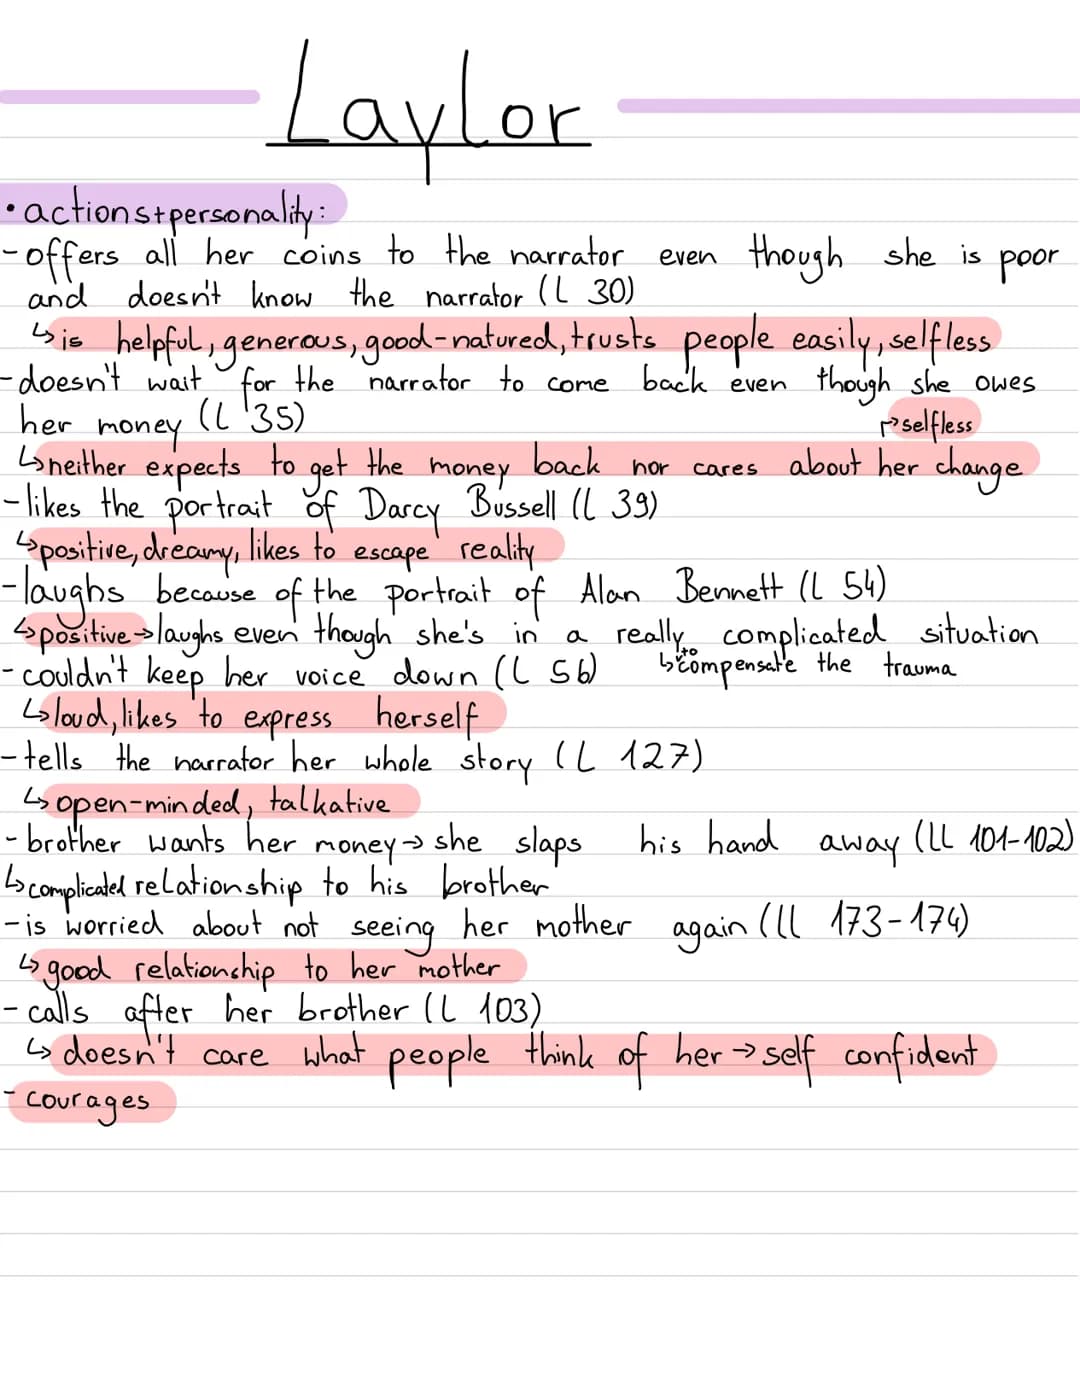 Laylor
• actions+personality:
- offers all her coins to the narrator even though she is poor
and doesn't know the narrator (l 30)
↳ is helpful, generous, good-natured, trusts people easily, selfless
- doesn't wait for the narrator to come back even though she owes
her money (l 35)
↱ selfless
↳ neither expects to get the money back nor cares about her change
- likes the portrait of Darcy Bussell (l 39)
↳ positive, dreamy, likes to escape reality
- laughs because of the portrait of Alan Bennett (l 54)
↳ positive → laughs even though she's in a really complicated situation
↳ to compensate the trauma
- couldn't keep her voice down (l 56)
↳ loud, likes to express herself
- tells the narrator her whole story (l 127)
↳ open-minded, talkative
- brother wants her money → she slaps his hand away (ll 101-102)
↳ complicated relationship to his brother
- is worried about not seeing her mother again (ll 173-174)
↳ good relationship to her mother
- calls after her brother (l 103)
↳ doesn't care what people think of her → self confident
- courages